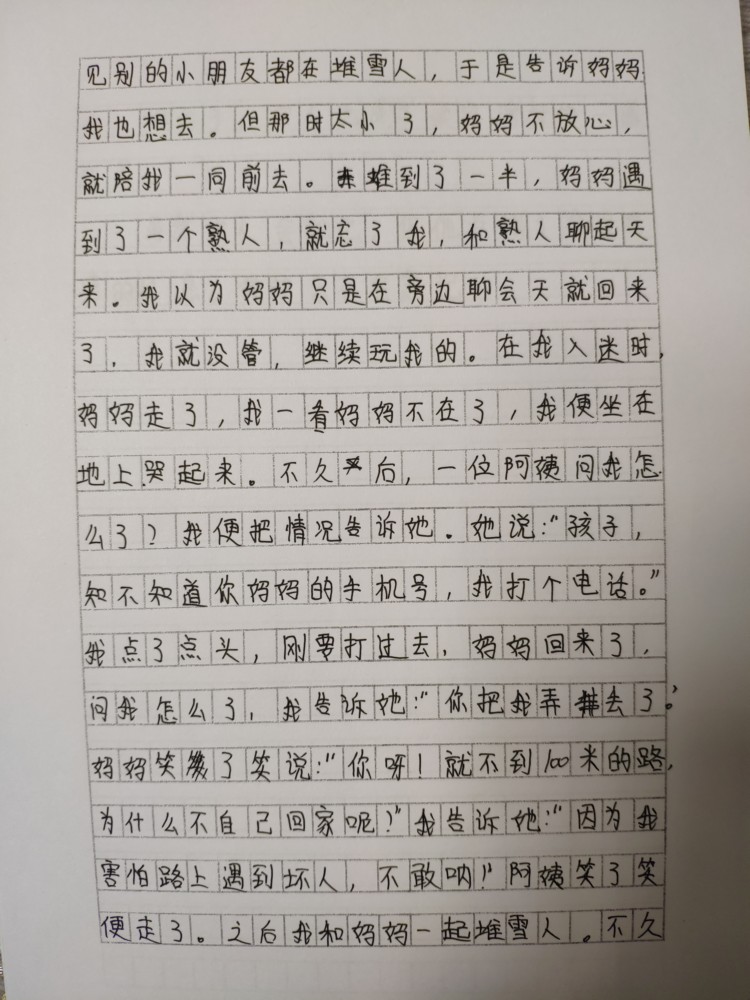 见别的小朋友都在堆雪人，于是告诉妈妈
我也想去。但那时太小了，妈妈不放心，
就陪我一同前去。堆到了一半，妈妈遇
到了一个熟人，就忘了我，和熟人聊起天
来。我以为妈妈只是在旁边聊会天就回来
了，我就没管，继续玩我的。在我入迷时，
妈妈走了，我一看妈妈不在了，我便坐在
地上哭起来。不久后，一位阿姨问我怎
么了？我便把情况告诉她。她说：“孩子，
知不知道你妈妈的手机号，我打个电话。”
我点了点头，刚要打过去，妈妈回来了，
问我怎么了，我告诉她：“你把我弄丢了。”
妈妈笑了笑说：“你呀！就不到100米的路，
为什么不自己回家呢？”我告诉她：“因为我
害怕路上遇到坏人，不敢呐！”阿姨笑了笑
便走了。之后我和妈妈一起堆雪人。不久